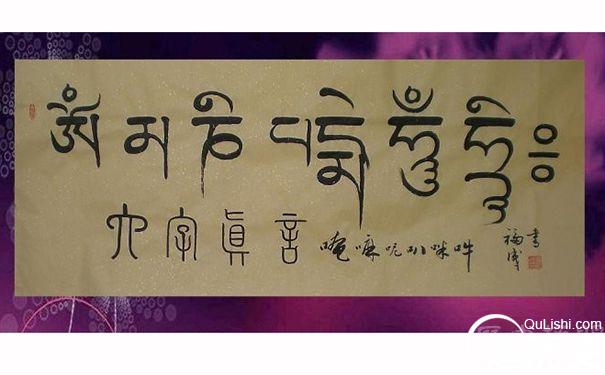 ཨོཾ མ ཎི པ དྨེ ཧཱུྃ ཧྲཱིཿ
六字眞言 唵嘛呢叭咪吽
書
QuLishi.com